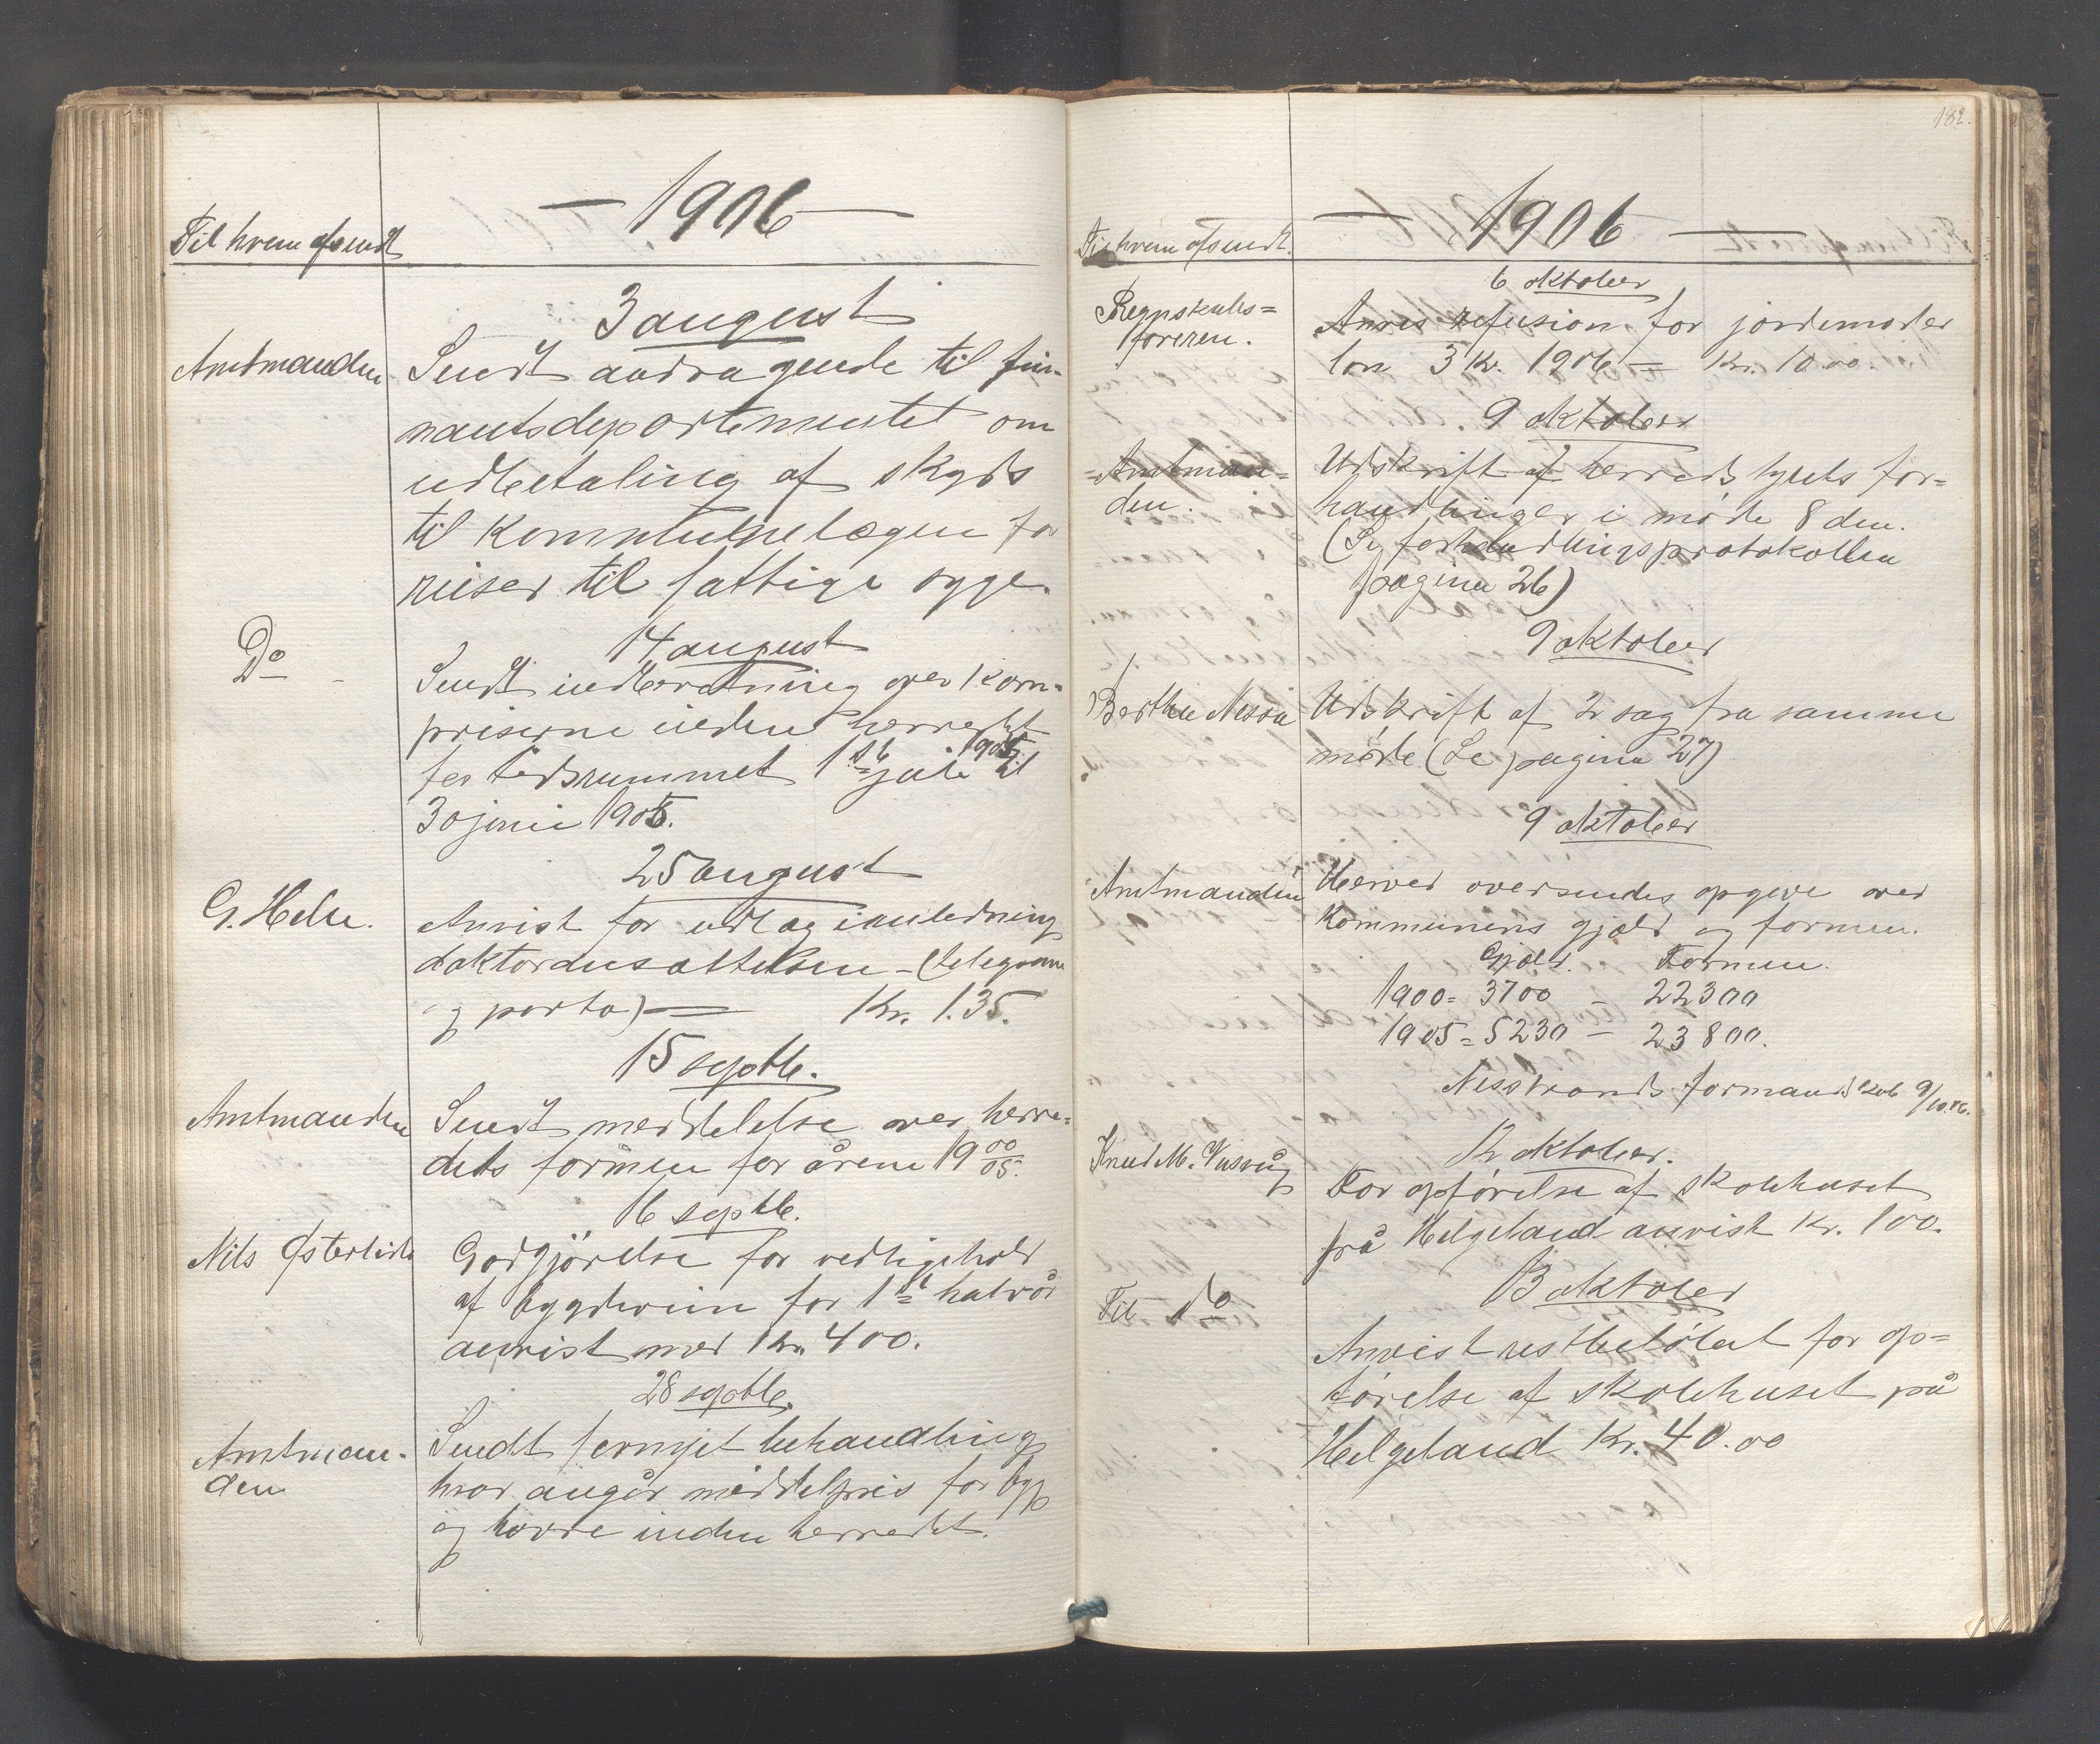 — 1906 —
Til hvem afsendt
3 august
Amtmanden
Sendt andragende til fin-
nantsdepartementet om
udbetaling af skyds
til kommunelægen for
reiser til fattige syge.
Do -
14 august
Sendt indberetning over korn-
priserne inden herredet
for tidsrummet 1ste juli 1905 til
30 juni 1906.
25 august
G. Helle.
Anvist for udlæg i anledning
doktoransættelsen - (telegram
og porto) — Kr. 1.35.
15 septb.
Amtmanden
Sendt meddelelse over herre-
dets formue for årene 19 00/05.
16 septb.
Nils Østerlide
Godtgjörelse for vedligehold
af bygdevein for 1ste halvår
anvist med Kr. 400.
28 septb.
Amtman-
den
Sendt fornyet behandling
hvor angår middelpris for byg
og havre inden herredet.
182.
— 1906 —
Til hvem afsendt.
6 oktober
Regnskabs=
föreren.
Anvis refusion for jordemoder
lön 3 Kv. 1906 = Kr. 10.00.
9 oktober
=Amtman=
den.
Udskrift af herredstyrets for=
handlinger i möde 8 den.
(Se forhandlingsprotokollen
pagina 26)
9 oktober
Berthe Nessa
Udskrift af 2 sag fra samme
möde (Se pagina 27)
9 oktober
Amtmanden
Herved oversendes opgave over
Kommunens gjæld og formue.
Gjæld. Formue.
1900 = 3700 - 22300
1905 = 5230 - 23800.
Nesstrands formandskab 9/10.06.
12 oktober.
Knud M.
For opförelse af skolehuset
på Helgeland anvist Kr. 100.
13 oktober
Til do
Anvist restbelöbet for op=
förelse af skolehuset på
Helgeland Kr. 40.00